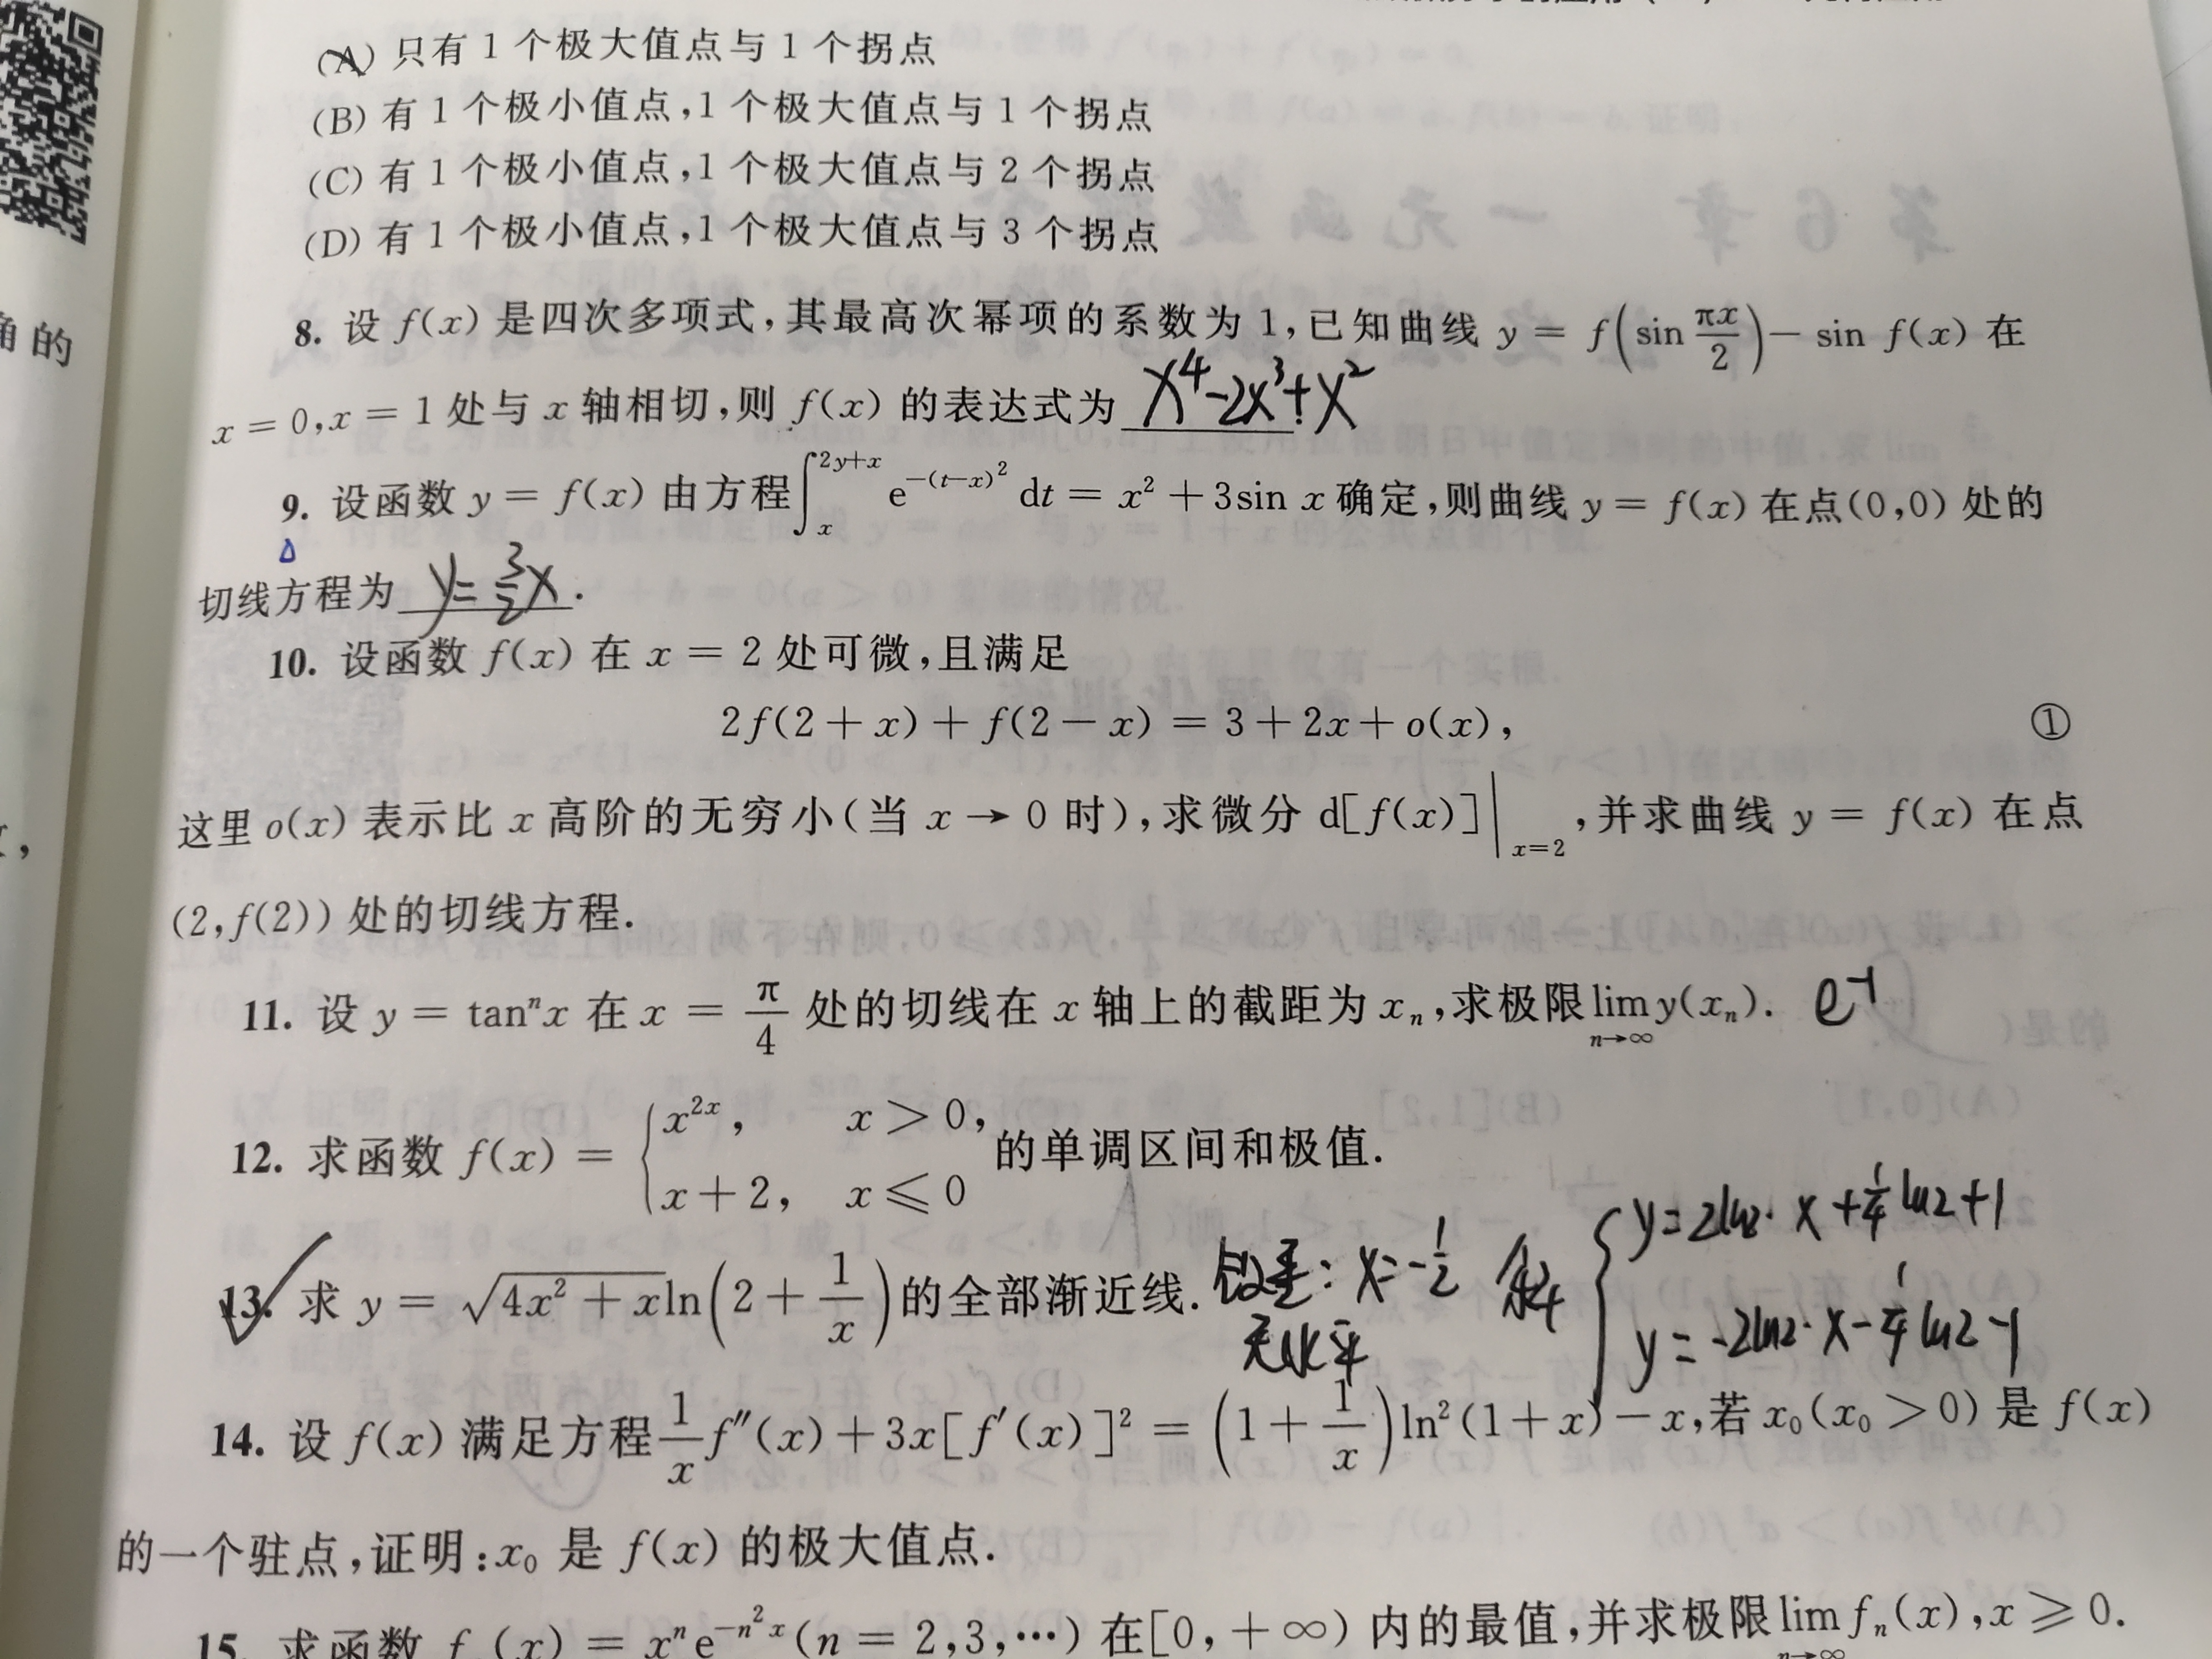 (A) 只有 1 个极大值点与 1 个拐点
(B) 有 1 个极小值点,1 个极大值点与 1 个拐点
(C) 有 1 个极小值点,1 个极大值点与 2 个拐点
(D) 有 1 个极小值点,1 个极大值点与 3 个拐点
角的
8. 设 f(x) 是四次多项式,其最高次幂项的系数为 1,已知曲线 y = f(sin πx/2) − sin f(x) 在
x = 0,x = 1 处与 x 轴相切,则 f(x) 的表达式为 x⁴-2x³+x²
9. 设函数 y = f(x) 由方程∫_x^{2y+x} e^{−(t−x)²} dt = x² + 3sin x 确定,则曲线 y = f(x) 在点(0,0) 处的
切线方程为 y=3/2x.
10. 设函数 f(x) 在 x = 2 处可微,且满足
2f(2 + x) + f(2 − x) = 3 + 2x + o(x), ①
这里 o(x) 表示比 x 高阶的无穷小(当 x → 0 时),求微分 d[f(x)]|_{x=2},并求曲线 y = f(x) 在点
(2,f(2)) 处的切线方程.
11. 设 y = tanⁿx 在 x = π/4 处的切线在 x 轴上的截距为 xₙ,求极限 lim_{n→∞} y(xₙ). e⁻¹
12. 求函数 f(x) = { x^{2x}, x > 0,
x + 2, x ⩽ 0 的单调区间和极值.
13. 求 y = √(4x² + x) ln(2 + 1/x) 的全部渐近线. 铅垂: x=-1/2 斜 { y=2ln2·x+1/4ln2+1
无水平 y=-2ln2·x-1/4ln2-1
14. 设 f(x) 满足方程 1/x f″(x) + 3x[f′(x)]² = (1 + 1/x)ln²(1 + x) − x,若 x₀(x₀ > 0) 是 f(x)
的一个驻点,证明:x₀ 是 f(x) 的极大值点.
15. 求函数 fₙ(x) = xⁿe^{−n²x}(n = 2,3,⋯) 在[0,+∞) 内的最值,并求极限 lim_{n→∞} fₙ(x),x ⩾ 0.